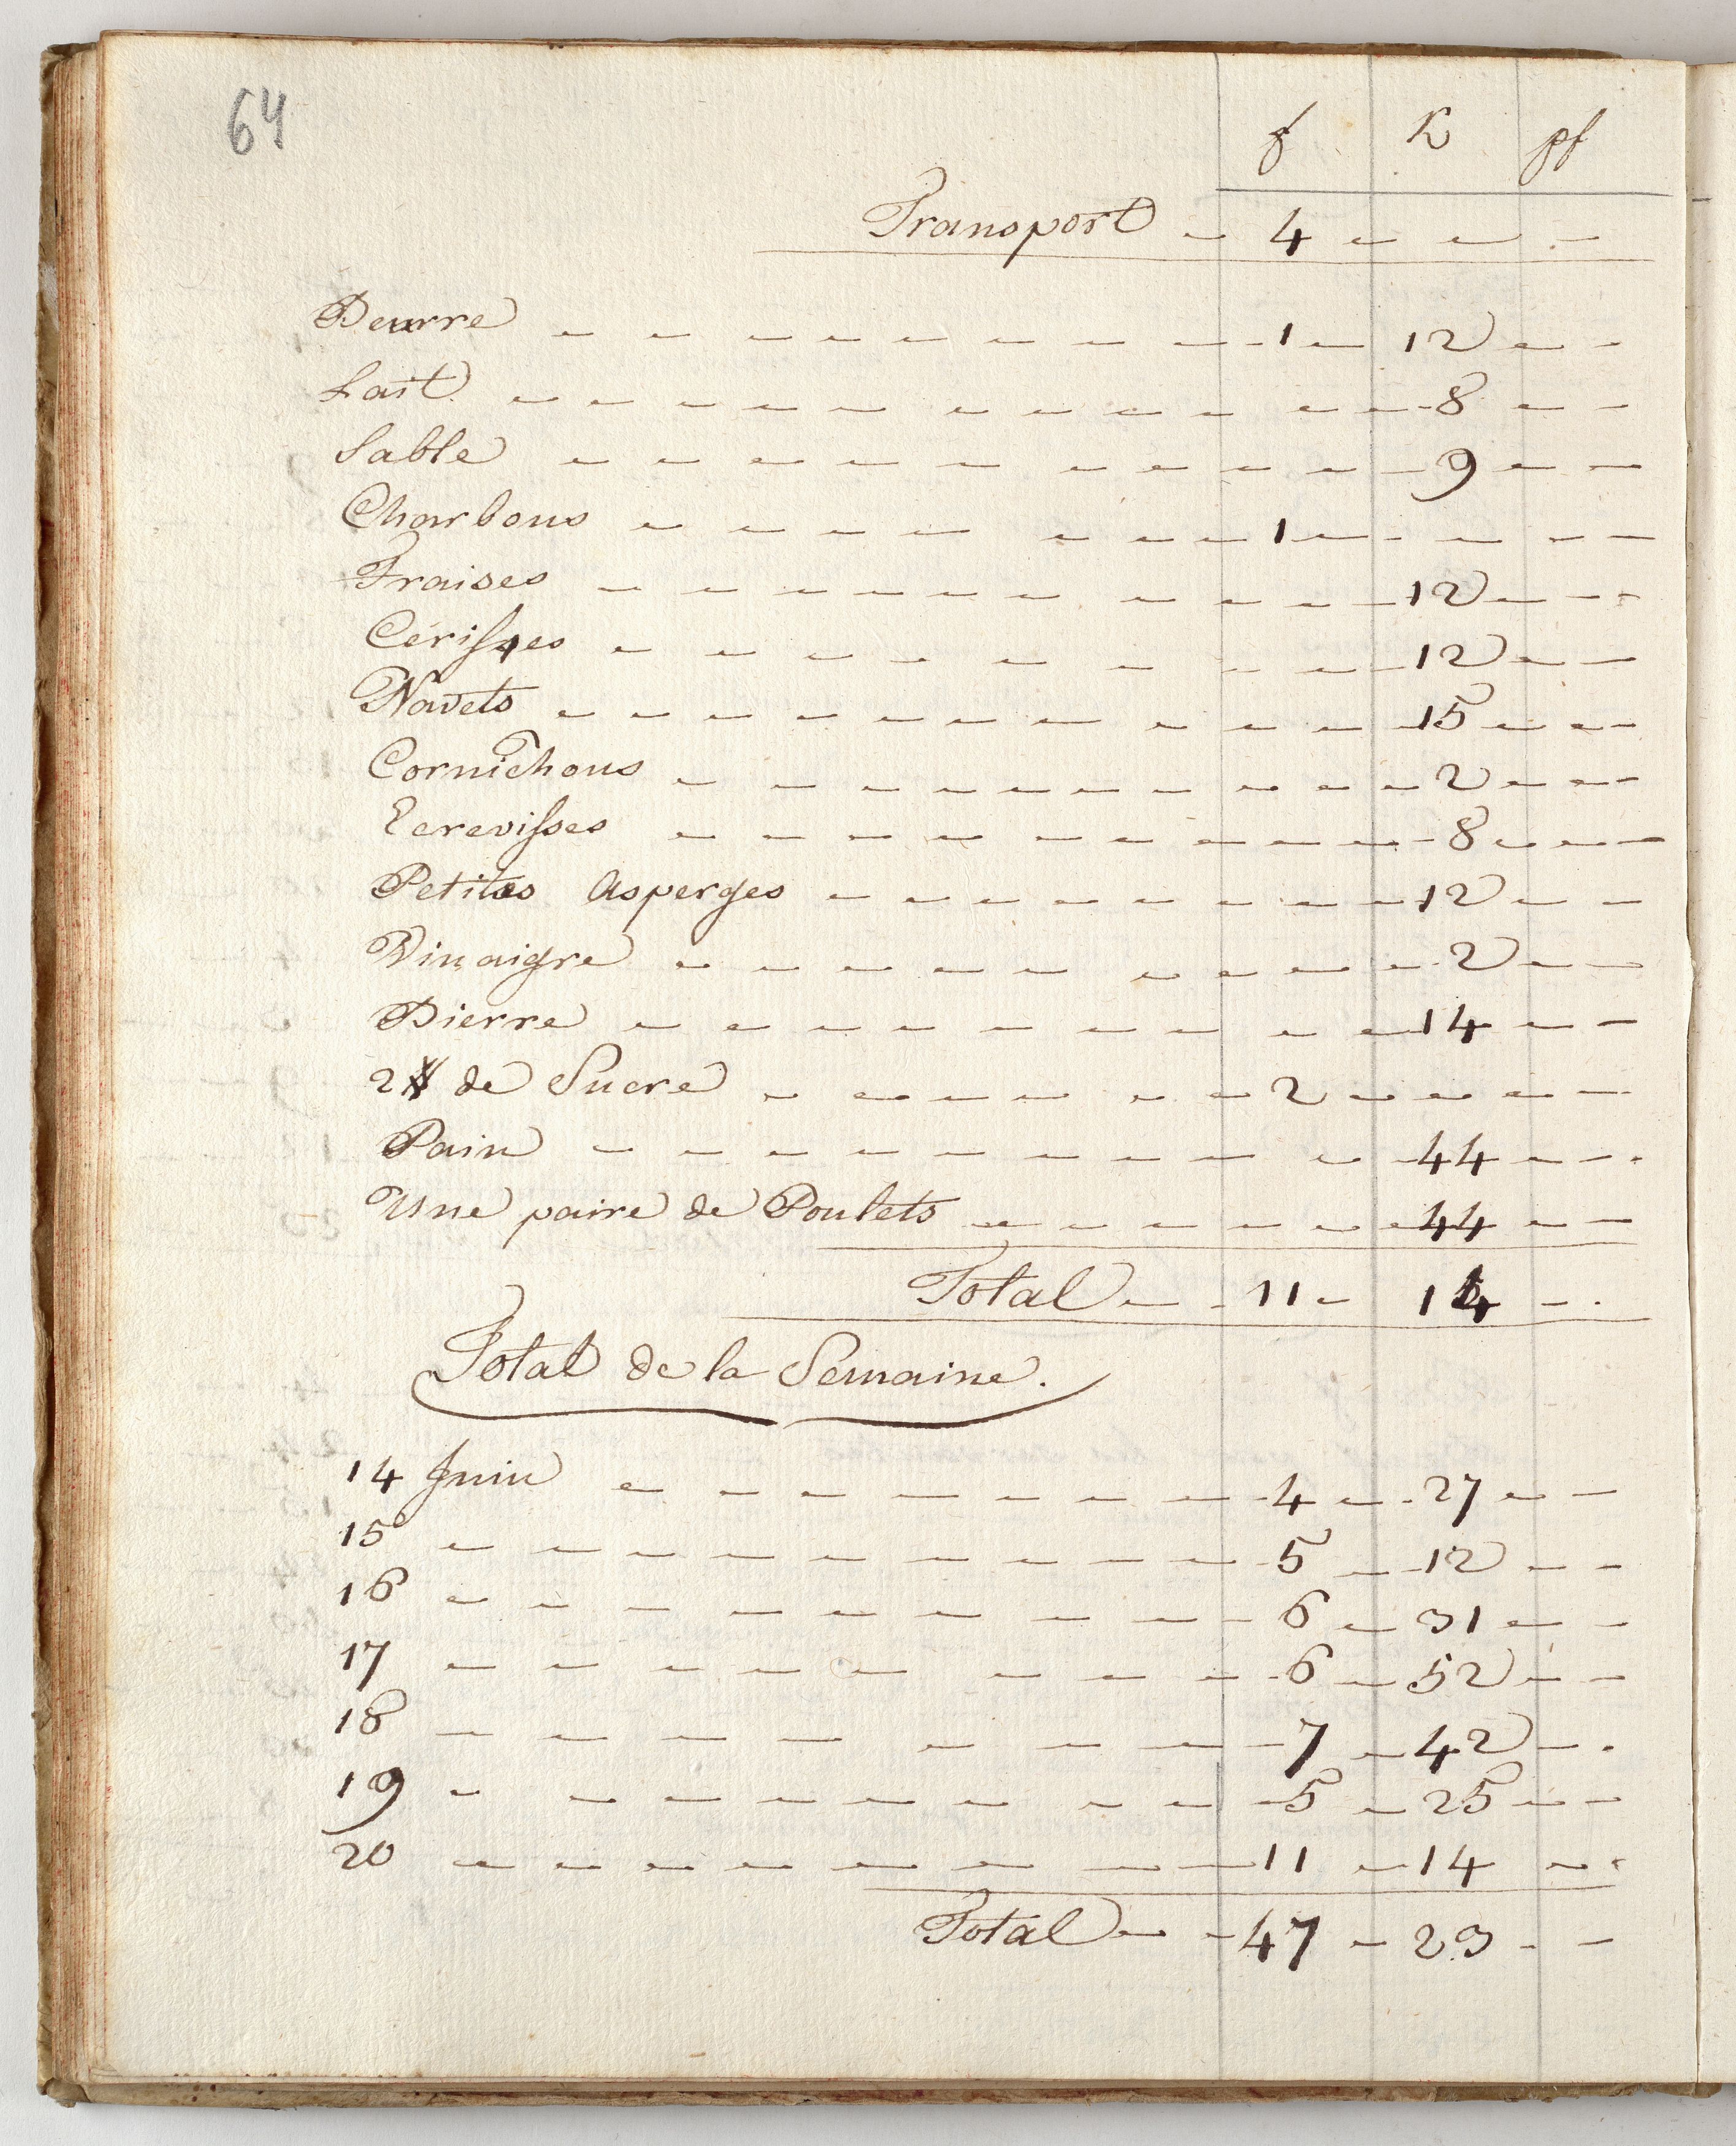 64
f K pf
Transport - 4 - - -
Beurre - 1 - 12 - -
Lait - 8 - -
Sable - 9 - -
Charbons - 1 - - - -
Fraises - 12 - -
Cerisses - 12 - -
Navets - 15 - -
Cornichons - 2 - -
Ecrevisses - 8 - -
Petites Asperges - 12 - -
Vinaigre - 2 - -
Bierre - 14 - -
2 de Sucre - 2 - - - -
Pain - 44 - -
Une paire de Poulets - 44 - -
Total - 11 - 14 - -
Total de la Semaine.
14 Juin - 4 - 27 - -
15 - 5 - 12 - -
16 - 6 - 31 - -
17 - 6 - 52 - -
18 - 7 - 42 - -
19 - 5 - 25 - -
20 - 11 - 14 - -
Total - 47 - 23 - -